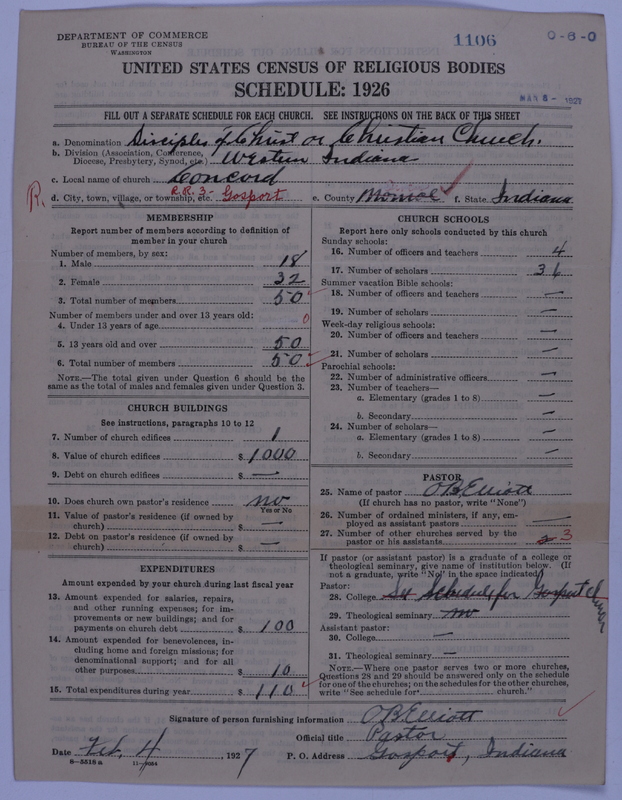 DEPARTMENT OF COMMERCE
BUREAU OF THE CENSUS
WASHINGTON
1106
0-8-0
UNITED STATES CENSUS OF RELIGIOUS BODIES
SCHEDULE: 1926
MAR 8 - 1927
FILL OUT A SEPARATE SCHEDULE FOR EACH CHURCH. SEE INSTRUCTIONS ON THE BACK OF THIS SHEET
a. Denomination Disciples of Christ or Christian Church.
b. Division (Association, Conference, Diocese, Presbytery, Synod, etc.) Western Indiana
c. Local name of church Concord
R. d. City, town, village, or township, etc. R.R. 3 - Gosport e. County Monroe ✓ f. State Indiana
MEMBERSHIP
Report number of members according to definition of
member in your church
Number of members, by sex:
1. Male 18
2. Female 32
3. Total number of members 50
Number of members under and over 13 years old:
4. Under 13 years of age 0
5. 13 years old and over 50
6. Total number of members 50
NOTE.—The total given under Question 6 should be the
same as the total of males and females given under Question 3.
CHURCH BUILDINGS
See instructions, paragraphs 10 to 12
7. Number of church edifices 1
8. Value of church edifices $ 1000
9. Debt on church edifices $ —
10. Does church own pastor's residence no
Yes or No
11. Value of pastor's residence (if owned by
church) $ —
12. Debt on pastor's residence (if owned by
church) $ —
EXPENDITURES
Amount expended by your church during last fiscal year
13. Amount expended for salaries, repairs,
and other running expenses; for im-
provements or new buildings; and for
payments on church debt $ 100
14. Amount expended for benevolences, in-
cluding home and foreign missions; for
denominational support; and for all
other purposes $ 10
15. Total expenditures during year $ 110
CHURCH SCHOOLS
Report here only schools conducted by this church
Sunday schools:
16. Number of officers and teachers 4
17. Number of scholars
Summer vacation Bible schools:
18. Number of officers and teachers —
19. Number of scholars —
Week-day religious schools:
20. Number of officers and teachers —
21. Number of scholars —
Parochial schools:
22. Number of administrative officers —
23. Number of teachers—
a. Elementary (grades 1 to 8) —
b. Secondary —
24. Number of scholars—
a. Elementary (grades 1 to 8) —
b. Secondary —
PASTOR
25. Name of pastor O B Elliott
(If church has no pastor, write "None")
26. Number of ordained ministers, if any, em-
ployed as assistant pastors —
27. Number of other churches served by the
pastor or his assistants 3
If pastor (or assistant pastor) is a graduate of a college or
theological seminary, give name of institution below. (If
not a graduate, write "No" in the space indicated)
Pastor:
28. College See Schedule for Gosport Church
29. Theological seminary no
Assistant pastor:
30. College —
31. Theological seminary —
NOTE.—Where one pastor serves two or more churches,
Questions 28 and 29 should be answered only on the schedule
for one of the churches; on the schedules for the other churches,
write "See schedule for church."
Signature of person furnishing information O B Elliott
Official title Pastor
Date Feb. 4, 1927 P. O. Address Gosport, Indiana
8-5518 a